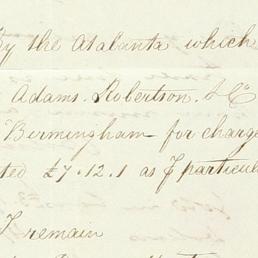 By the Atalanta which
Adams. Robertson. & Co
Birmingham for charge
ted £7.12.1 as P particul
I remain